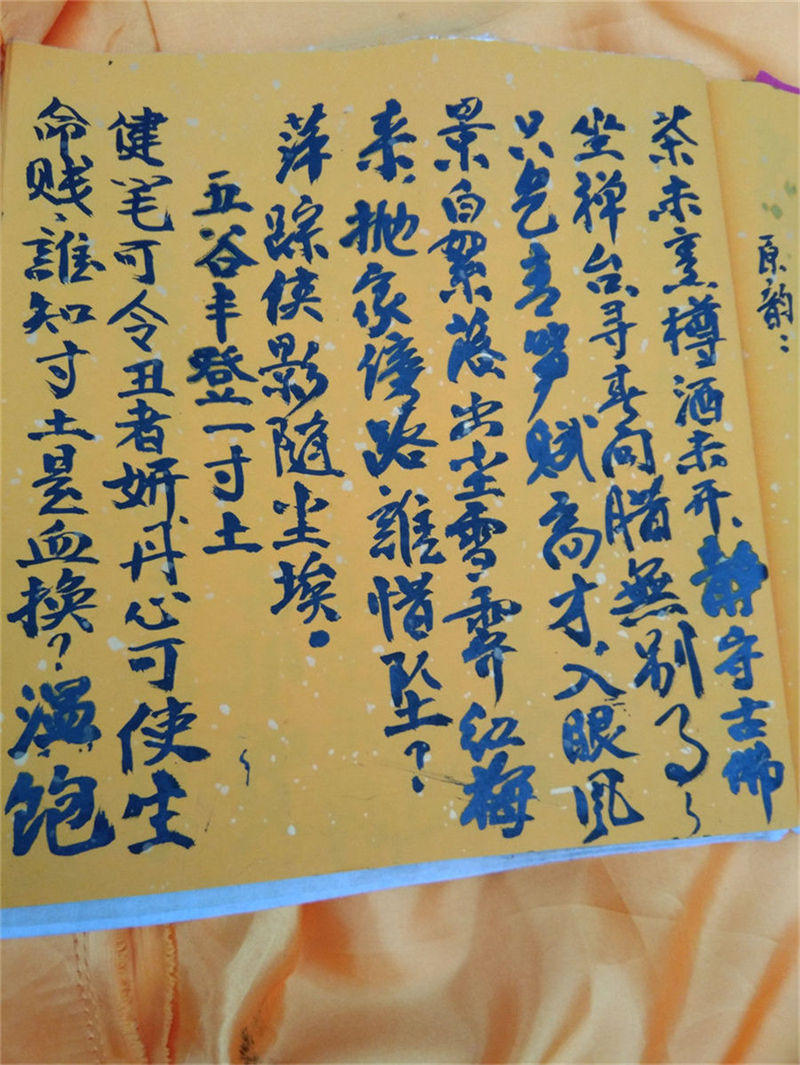 原韵:
茶未烹樽酒未开、静守古佛
坐禅台寻春向腊無别事
只凭青笋赋高才、入眼風
景白絮落出尘雪、霁红梅
来、抛家傍路誰惜坠?
萍踪侠影隨尘埃。
五谷丰登一寸土
健笔可令丑者妍、丹心可使生
命贱、誰知寸土是血换?温饱